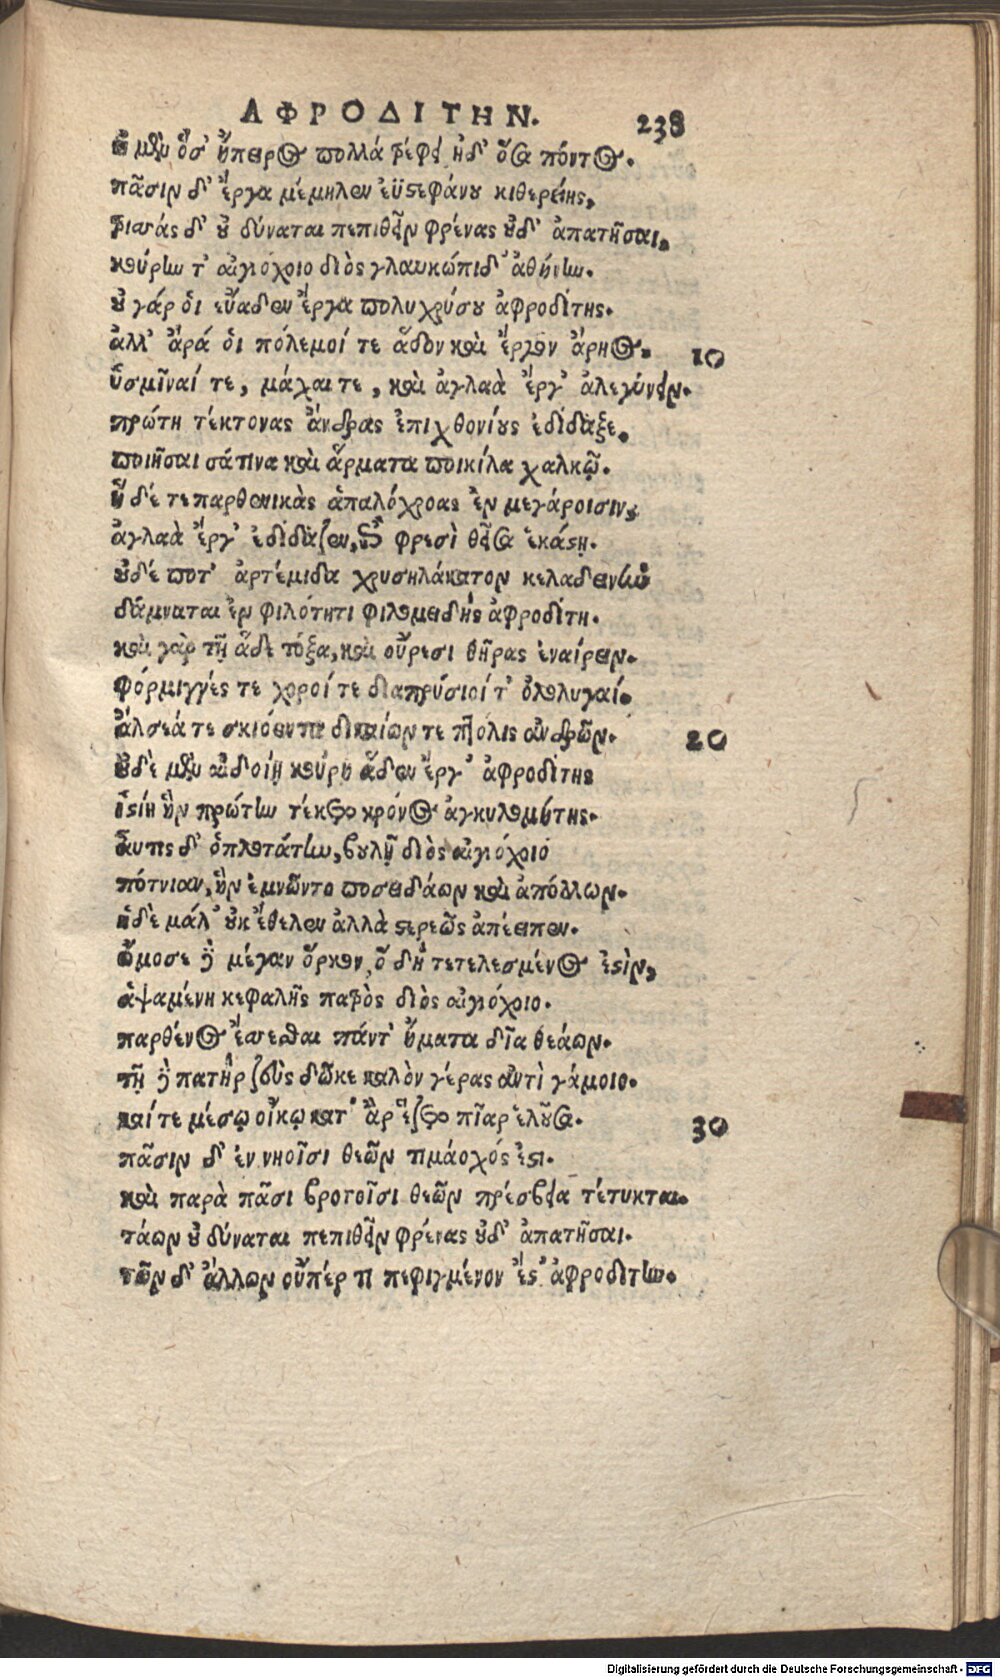 ΑΦΡΟΔΙΤΗΝ. 238
ἠ μὲν ὅσ' ἤπειρος πολλὰ τρέφει ἠδ' ὅσα πόντος.
πᾶσιν δ' ἔργα μέμηλεν ἐϋστεφάνου κιθερείης,
τρισσὰς δ' οὐ δύναται πεπιθεῖν φρένας οὐδ' ἀπατῆσαι,
κούρην τ' αἰγιόχοιο διὸς γλαυκώπιδ' ἀθήνην.
οὐ γάρ ὁι εὔαδεν ἔργα πολυχρύσου ἀφροδίτης.
ἀλλ' ἄρά ὁι πόλεμοί τε ἅδον καὶ ἔργον ἄρηος. 10
ὑσμῖναί τε, μάχαι τε, καὶ ἀγλαὰ ἔργ' ἀλεγύνειν.
πρώτη τέκτονας ἄνδρας ἐπιχθονίους ἐδίδαξε,
ποιῆσαι σάτινα καὶ ἅρματα ποικίλα χαλκῷ.
ἥ δέ τε παρθενικὰς ἁπαλόχροας ἐν μεγάροισιν,
ἀγλαὰ ἔργ' ἐδίδαξεν, ἐπὶ φρεσὶ θεῖσα ἑκάστῃ.
οὐδέ ποτ' ἀρτέμιδα χρυσηλάκατον κελαδεινὴν
δάμναται ἐν φιλότητι φιλομειδὴς ἀφροδίτη.
καὶ γὰρ τῇ ἅδε τόξα, καὶ οὔρεσι θῆρας ἐναίρειν.
φόρμιγγές τε χοροί τε διαπρύσιοί τ' ὀλολυγαί.
ἄλσεά τε σκιόεντα δικαίων τε πτόλις ἀνδρῶν. 20
οὐδὲ μὲν αἰδοίῃ κούρῃ ἅδεν ἔργ' ἀφροδίτης
ἱστίῃ ἣν πρώτην τέκετο κρόνος ἀγκυλομήτης.
αὖτις δ' ὁπλοτάτην, βουλῇ διὸς αἰγιόχοιο
πότνιαν, ἣν ἐμνῶντο ποσειδάων καὶ ἀπόλλων.
ἡδὲ μάλ' οὐκ ἔθελεν ἀλλὰ στερεῶς ἀπέειπεν.
ὤμοσε δὲ μέγαν ὅρκον, ὃ δὴ τετελεσμένος ἐστὶν,
ἁψαμένη κεφαλῆς πατρὸς διὸς αἰγιόχοιο.
παρθένος ἔσσεσθαι πάντ' ἤματα δῖα θεάων.
τῇ δὲ πατὴρ ζεὺς δῶκε καλὸν γέρας ἀντὶ γάμοιο.
καί τε μέσῳ οἴκῳ κατ' ἂρ ἕζετο πῖαρ ἑλοῦσα. 30
πᾶσιν δ' ἐν νηοῖσι θεῶν τιμάοχός ἐστι.
καὶ παρὰ πᾶσι βροτοῖσι θεῶν πρέσβειρα τέτυκται.
τάων οὐ δύναται πεπιθεῖν φρένας οὐδ' ἀπατῆσαι.
τῶν δ' ἄλλων οὔπέρ τι πεφιγμένον ἔστ' ἀφροδίτην.
Digitalisierung gefördert durch die Deutsche Forschungsgemeinschaft - DFG